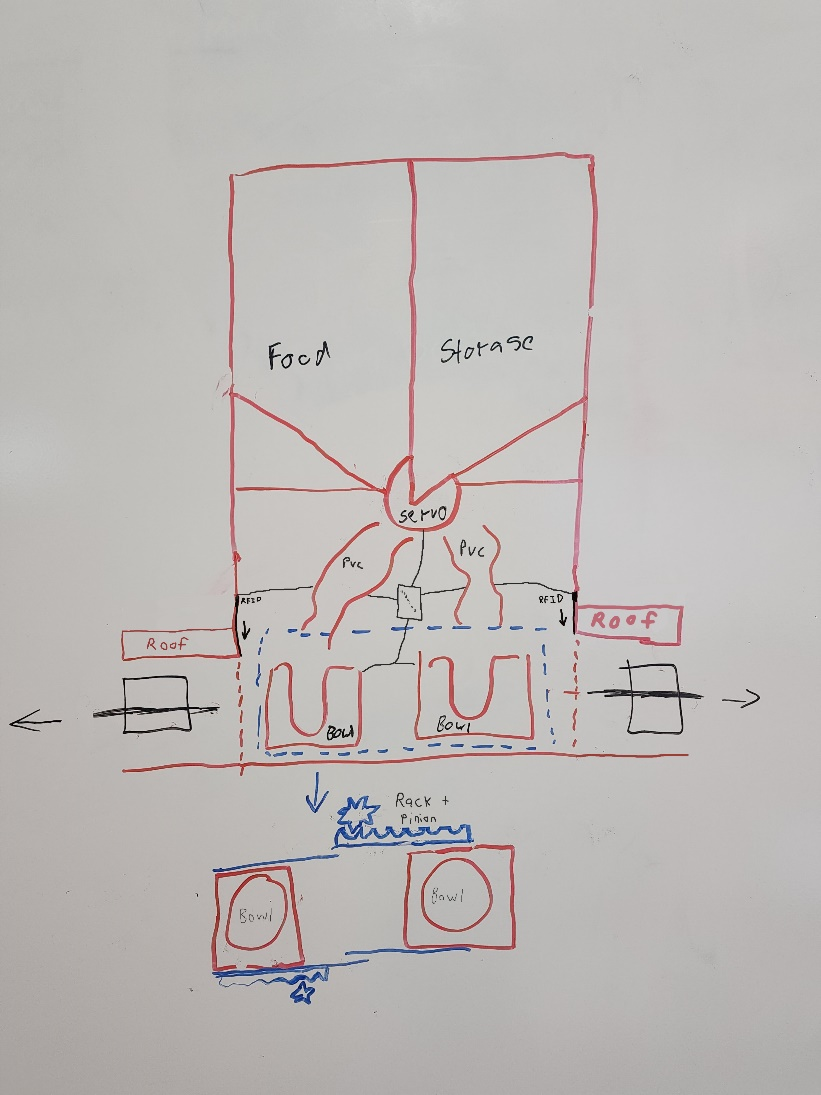 Food
Storage
Servo
PVC
PVC
RFID
RFID
Roof
Roof
Bowl
Bowl
Rack +
Pinion
Bowl
Bowl